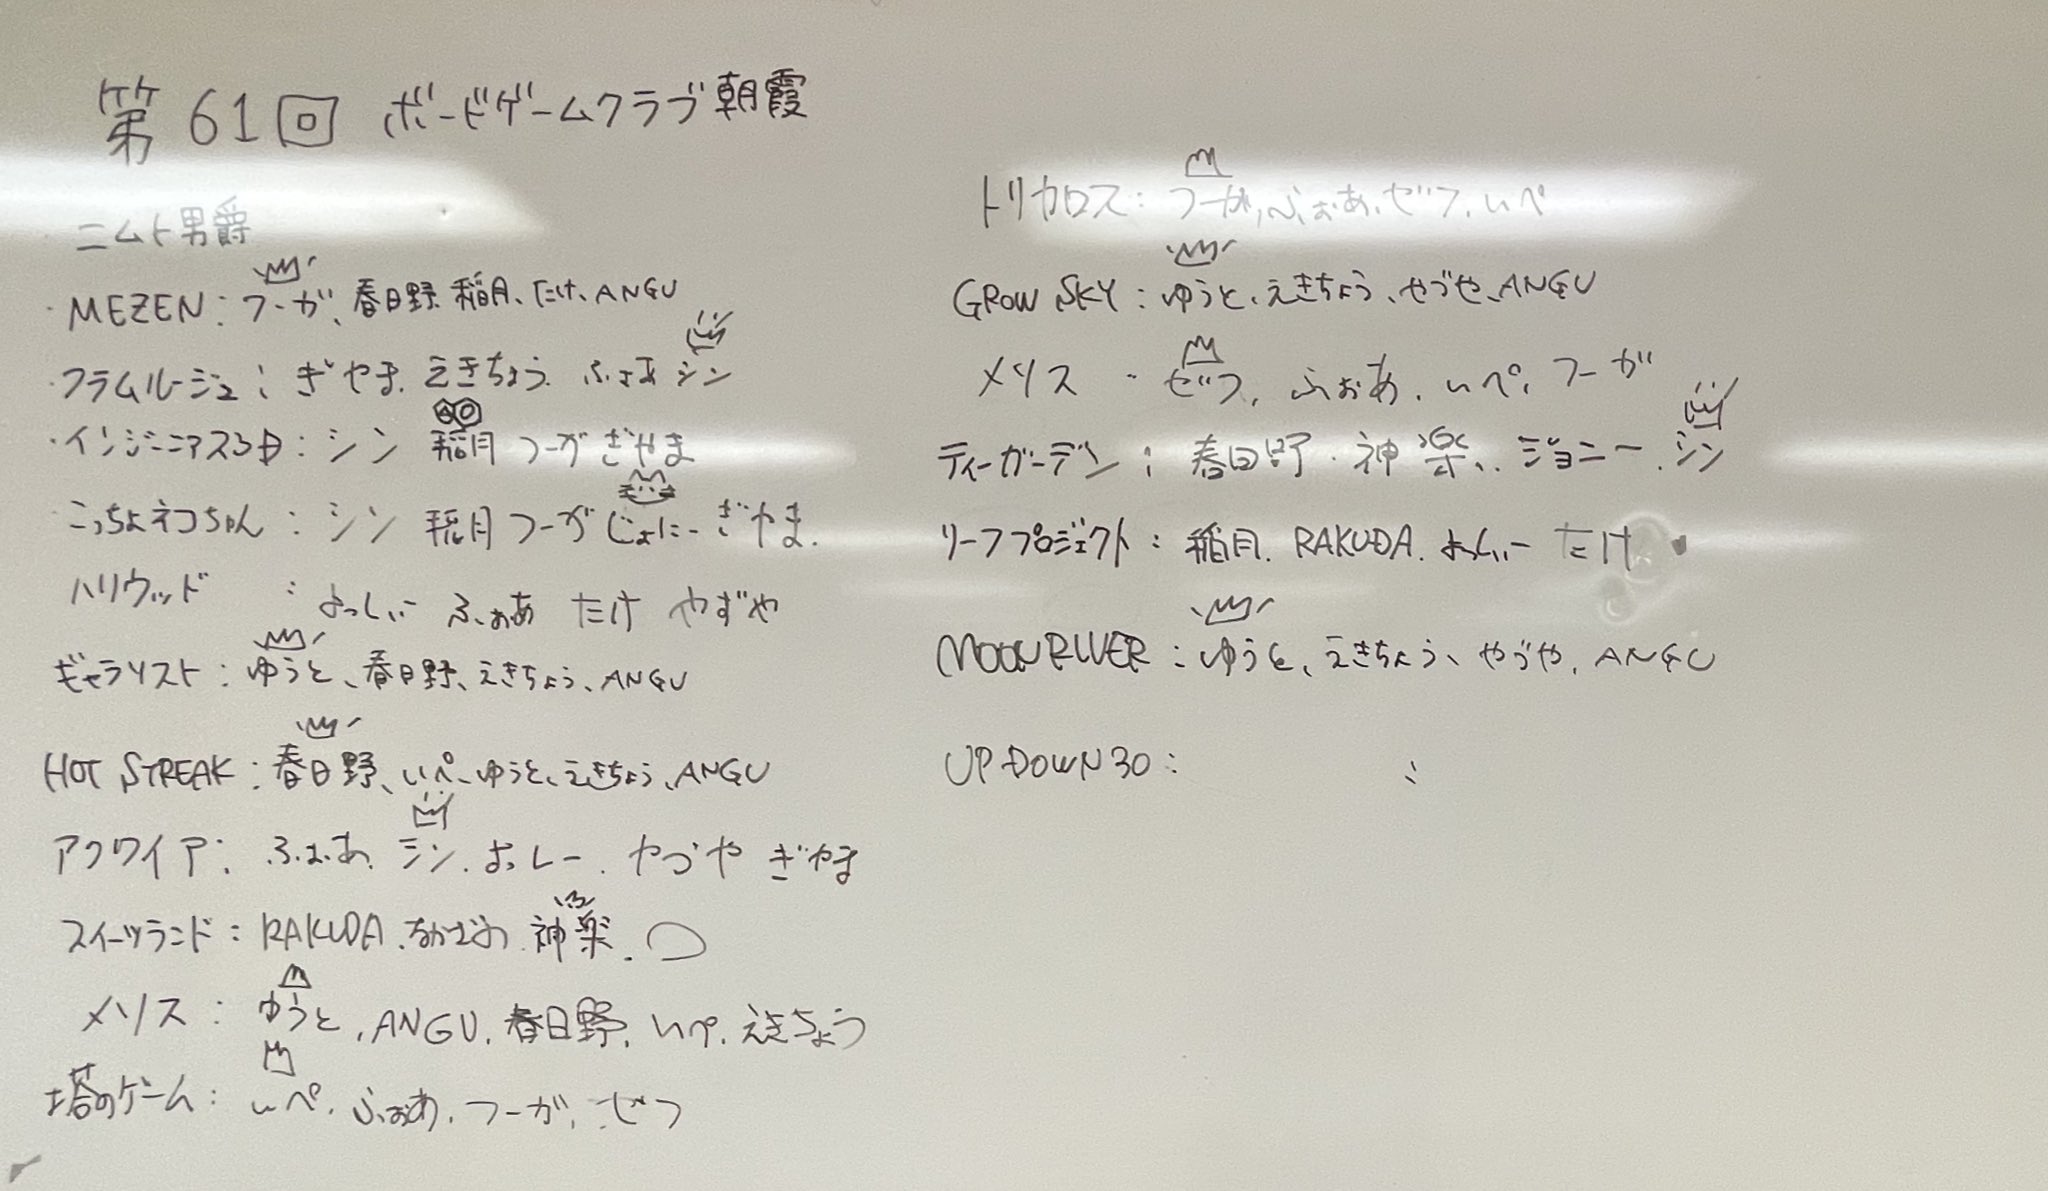 第61回 ボードゲームクラブ朝霞
ニムト男爵
・MEZEN : フーガ、春日野、稲月、たけ、ANGU
・フラムルージュ : ぎやま、えきちょう、ふぉあ シン
・インジーニアス : シン 稲月 フーガ ぎやま
こっちょネコちゃん : シン 稲月 フーガ じょにー ぎやま.
ハリウッド : よっしぃー ふぉぁあ たけ やずや
ギャラリスト : ゆうと、春日野、えきちょう、ANGU
HOT STREAK : 春日野、いぺ、ゆうと、えきちょう、ANGU
アクワイア : ふぉあ. シン. よっしー. やづや ぎやま
スイーツランド : RAKUDA. 神楽.
メソス : ゆうと, ANGU, 春日野, いぺ, えきちょう
塔のゲーム : いぺ, ふぉあ, フーガ, ぜフ
トリカロス : フーガ, ふぉあ, ゼフ, いぺ
GROW SKY : ゆうと、えきちょう、やづや、ANGU
メソス : ゼフ, ふぉあ, いぺ, フーガ
ティーガーデン : 春日野. 神楽、ジョニー. シン
リーフプロジェクト : 稲月. RAKUDA. よっしぃー たけ
MOON RIVER : ゆうと、えきちょう、やづや, ANGU
UP DOWN 30 :